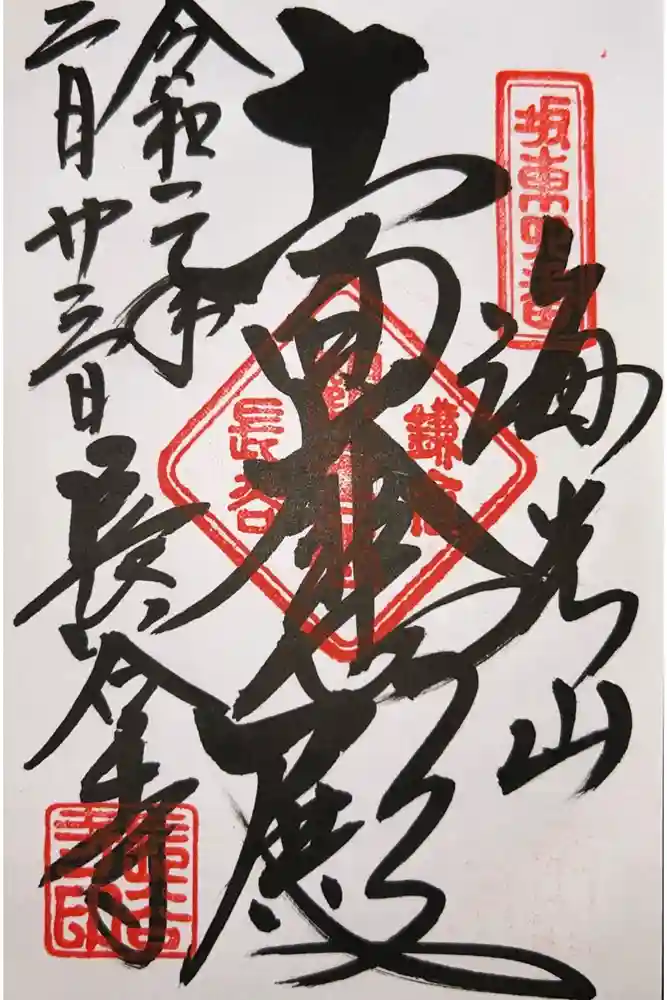 坂東四番
海光山
十一面大悲殿
鎌倉
長谷
令和二年
二月廿三日
長谷寺